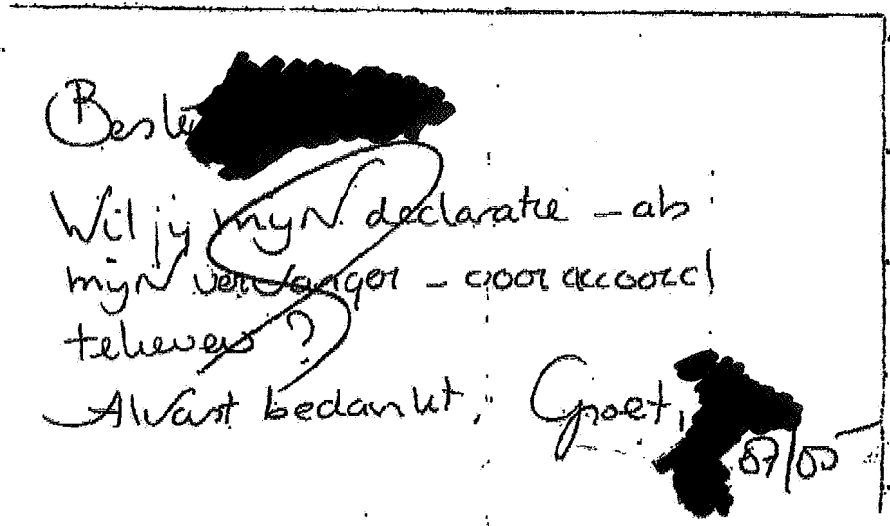 Beste
Wil jij mijn declaratie – als
mijn vervanger – voor accoord
tekenen?
Alvast bedankt, Groet,